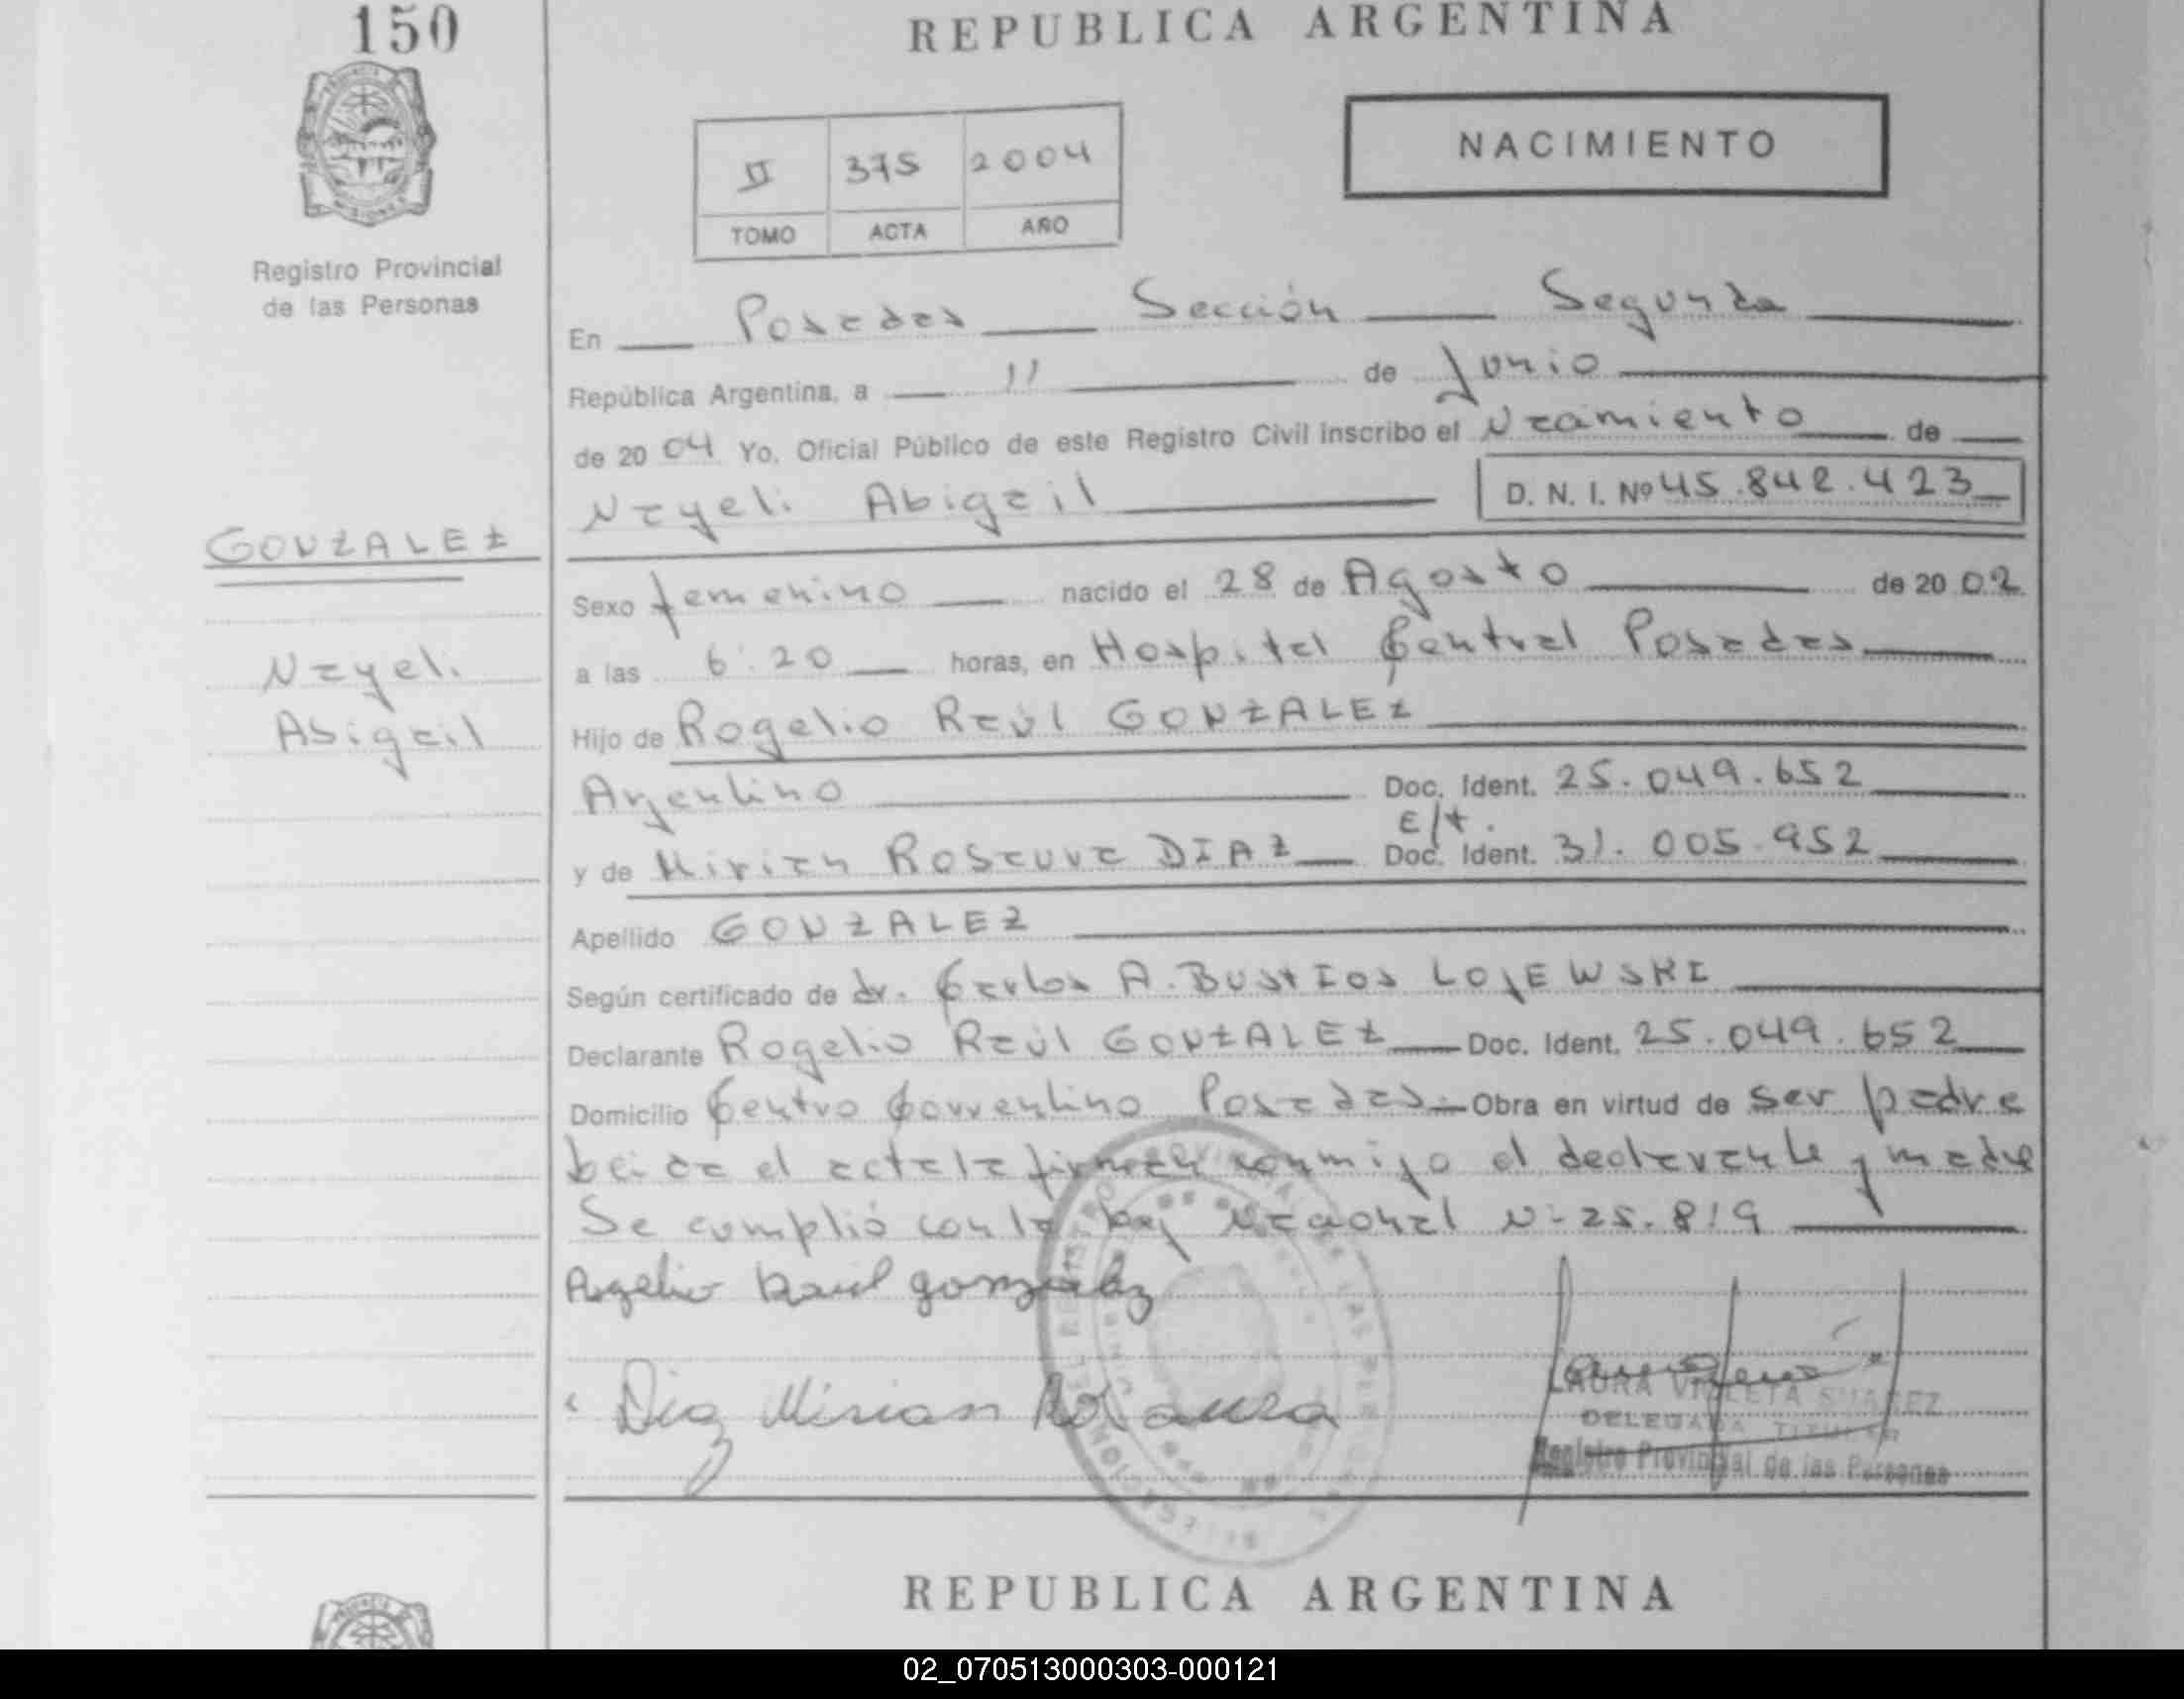 150
REPUBLICA ARGENTINA
NACIMIENTO
II 375 2004
TOMO ACTA AÑO
Registro Provincial
de las Personas
En Posadas Sección Segunda
República Argentina, a 11 de Junio
de 2004 Yo, Oficial Público de este Registro Civil inscribo el Nacimiento de
Nayeli Abigail D. N. I. Nº 45.842.423
GONZALEZ
Sexo femenino nacido el 28 de Agosto de 2002
Nayeli
a las 6:20 horas, en Hospital Central Posadas
Abigail
Hijo de Rogelio Raúl GONZALEZ
Argentino Doc. Ident. 25.049.652
E/t.
y de Mirian Rosaura DIAZ Doc. Ident. 31.005.952
Apellido GONZALEZ
Según certificado de dr. Carlos A. BUSTIOS LOJEWSKI
Declarante Rogelio Raúl GONZALEZ Doc. Ident. 25.049.652
Domicilio Centro Correntino Posadas Obra en virtud de ser padre
Leida el acta la firman conmigo el declarante y madre
Se cumplió con la Ley Nacional N: 25.819
Rogelio Raul gonzalez
Diaz Mirian Rosaura
LAURA VIOLETA SUAREZ
DELEGADA TITULAR
Registro Provincial de las Personas
REPUBLICA ARGENTINA
02_070513000303-000121